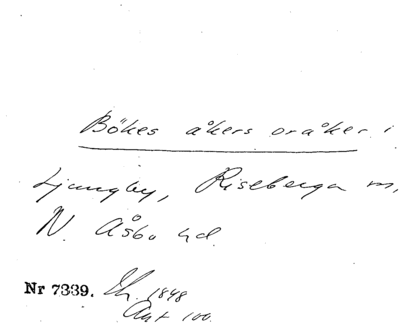 Bökes åkers oråker i
Ljungby, Riseberga m,
N. Åsbo hd.
Nr 7339. Sk. 1848
Ant 100.